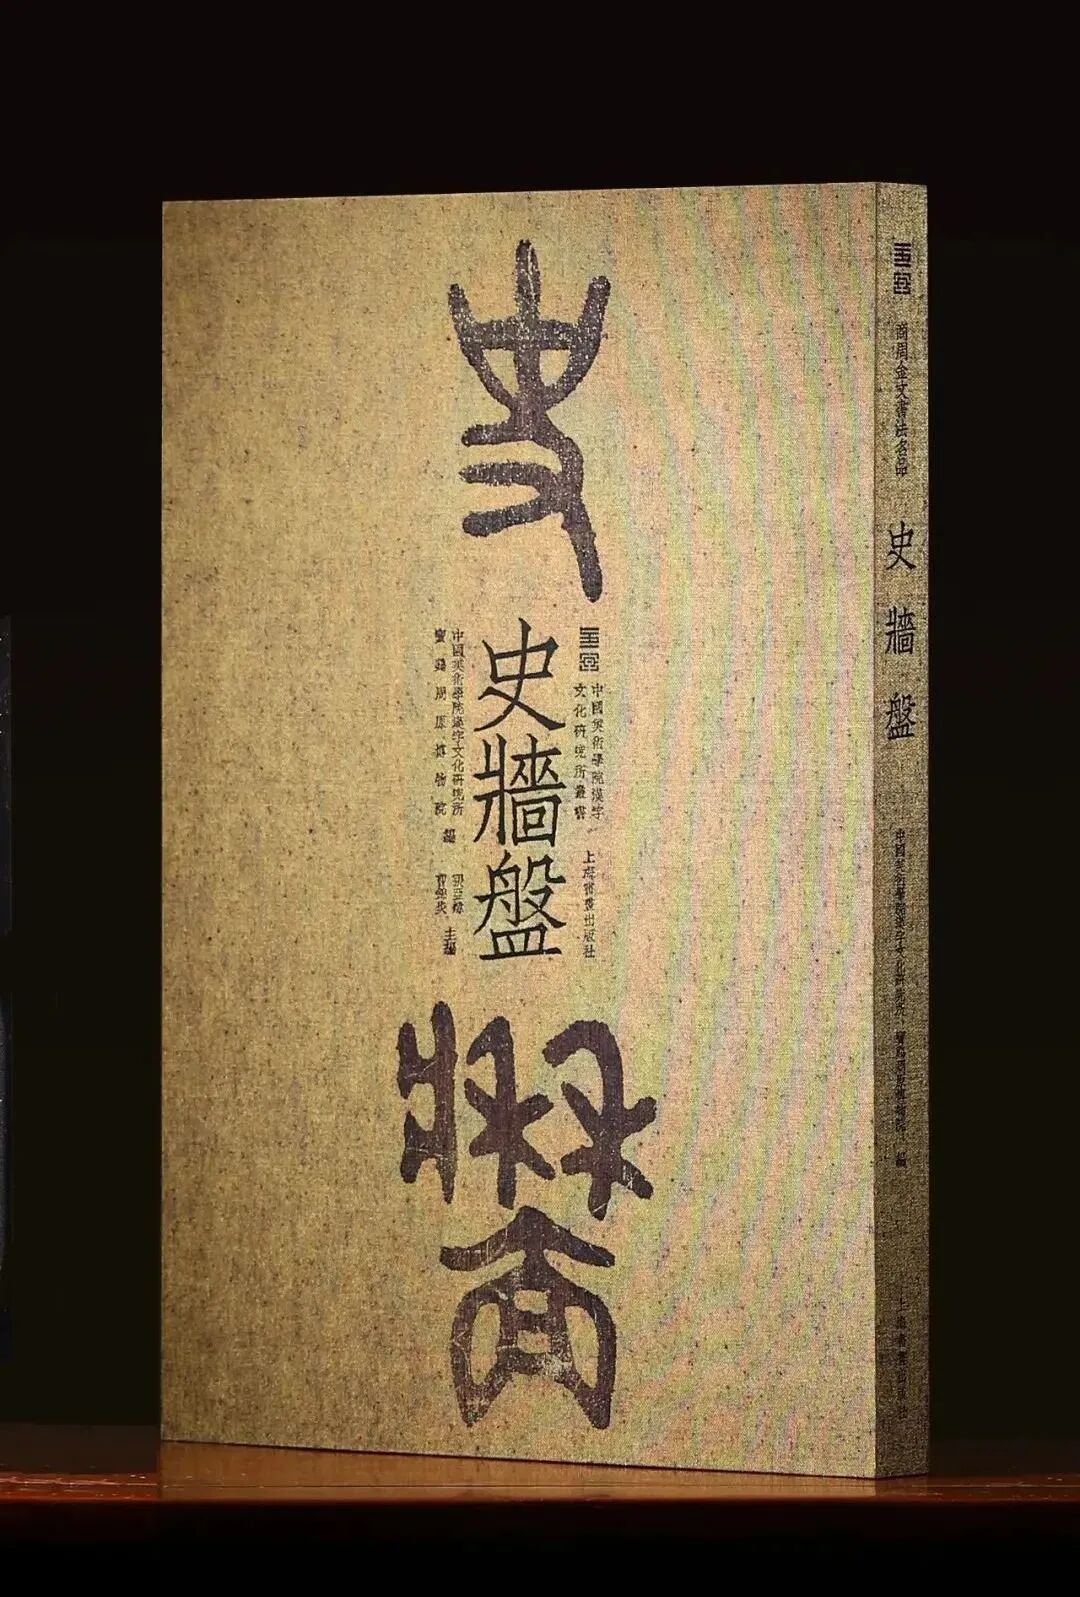 史
中國美術學院漢字
文化研究所叢書
上海書畫出版社
史牆盤
中國美術學院漢字文化研究所
寶雞周原博物院 編
曹錦炎 主編
牆
商周金文書法名品
史牆盤
中國美術學院漢字文化研究所 寶雞周原博物院 編
上海書畫出版社